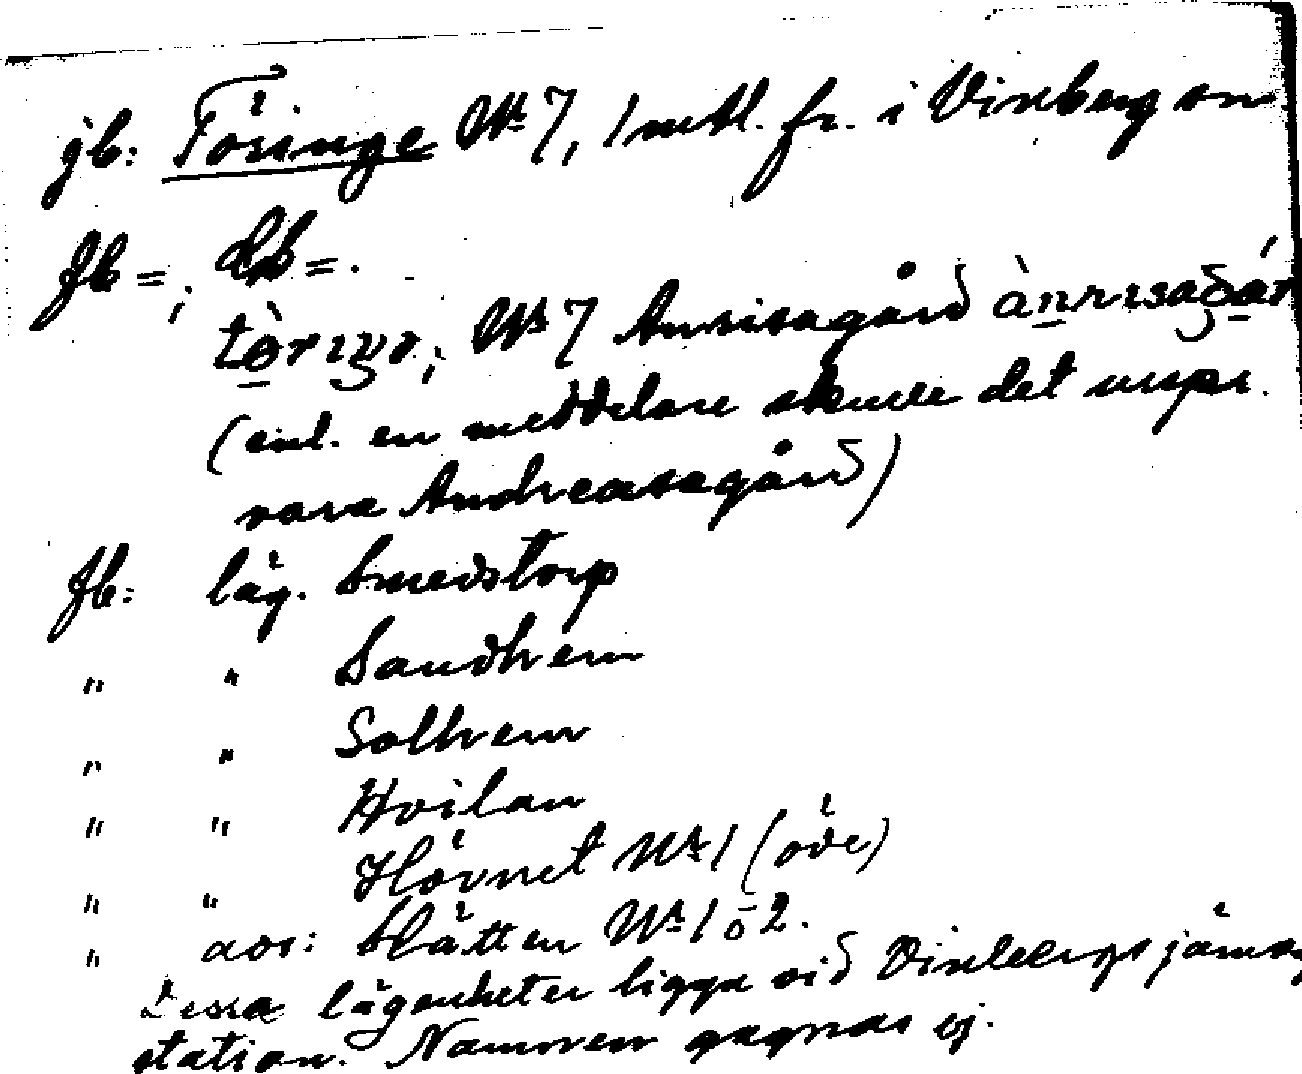 jb: Töringe Nr 7, 1 mtl. fr. i Vinberg sn
Jb =; Kb =.
Nr 7 Anrisagård
(enl. en meddelare skulle det urspr.
vara Andreasagård)
Jb: läg. Smedstorp
" " Sandhem
" " Solhem
" " Hvilan
" " Hövnet Nr 1 (öde)
" avs: Slätten Nr 1 o 2.
Dessa lägenheter ligga vid Vinbergs järnvg
station. Namnen gagnas ej.